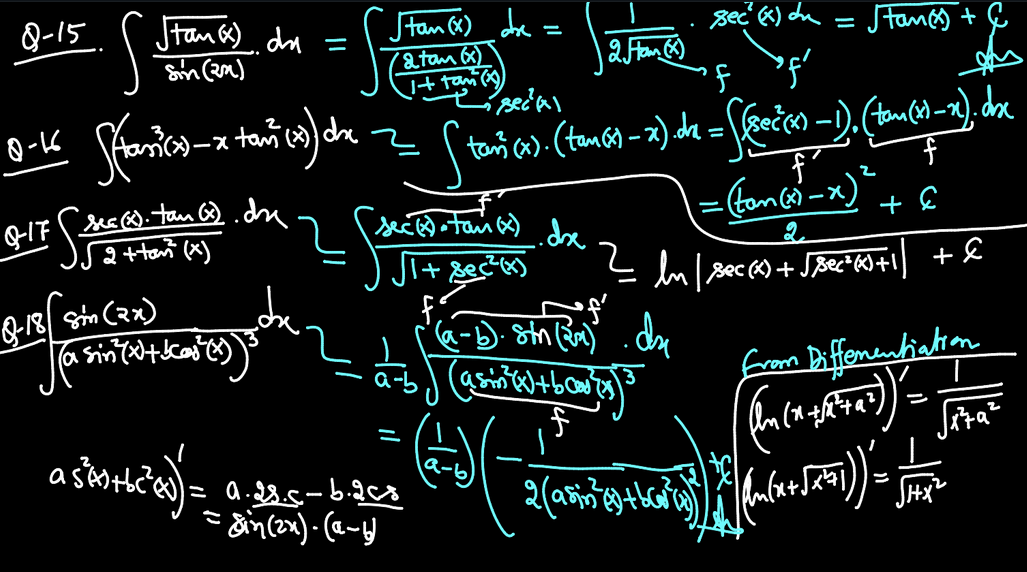 Q-15. ∫ √tan(x) / sin(2x) . dx = ∫ √tan(x) / (2tan(x) / (1+tan²(x))) dx = ∫ 1 / 2√tan(x) . sec²(x) dx = √tan(x) + C
→ sec²(x) → f → f'
Q-16 ∫ (tan³(x) − x tan²(x)) dx = ∫ tan²(x) . (tan(x) − x) . dx = ∫ (sec²(x) − 1) . (tan(x) − x) . dx
f' f
= (tan(x) − x)² / 2 + C
Q-17 ∫ sec(x) . tan(x) / √2 + tan²(x) . dx = ∫ sec(x) . tan(x) / √1 + sec²(x) . dx = ln | sec(x) + √sec²(x)+1 | + C
f'
f
Q-18 ∫ sin(2x) / (a sin²(x) + b cos²(x))³ dx = 1 / a−b ∫ (a−b) . sin(2x) / (a sin²(x) + b cos²(x))³ . dx
f'
f
= (1 / a−b) (− 1 / 2(a sin²(x) + b cos²(x))²) + C
a s²(x) + b c²(x))' = a . 2s.c − b . 2cs
= sin(2x) . (a−b)
From Differentiation
(ln(x + √x²+a²))' = 1 / √x²+a²
(ln(x + √x²+1))' = 1 / √1+x²